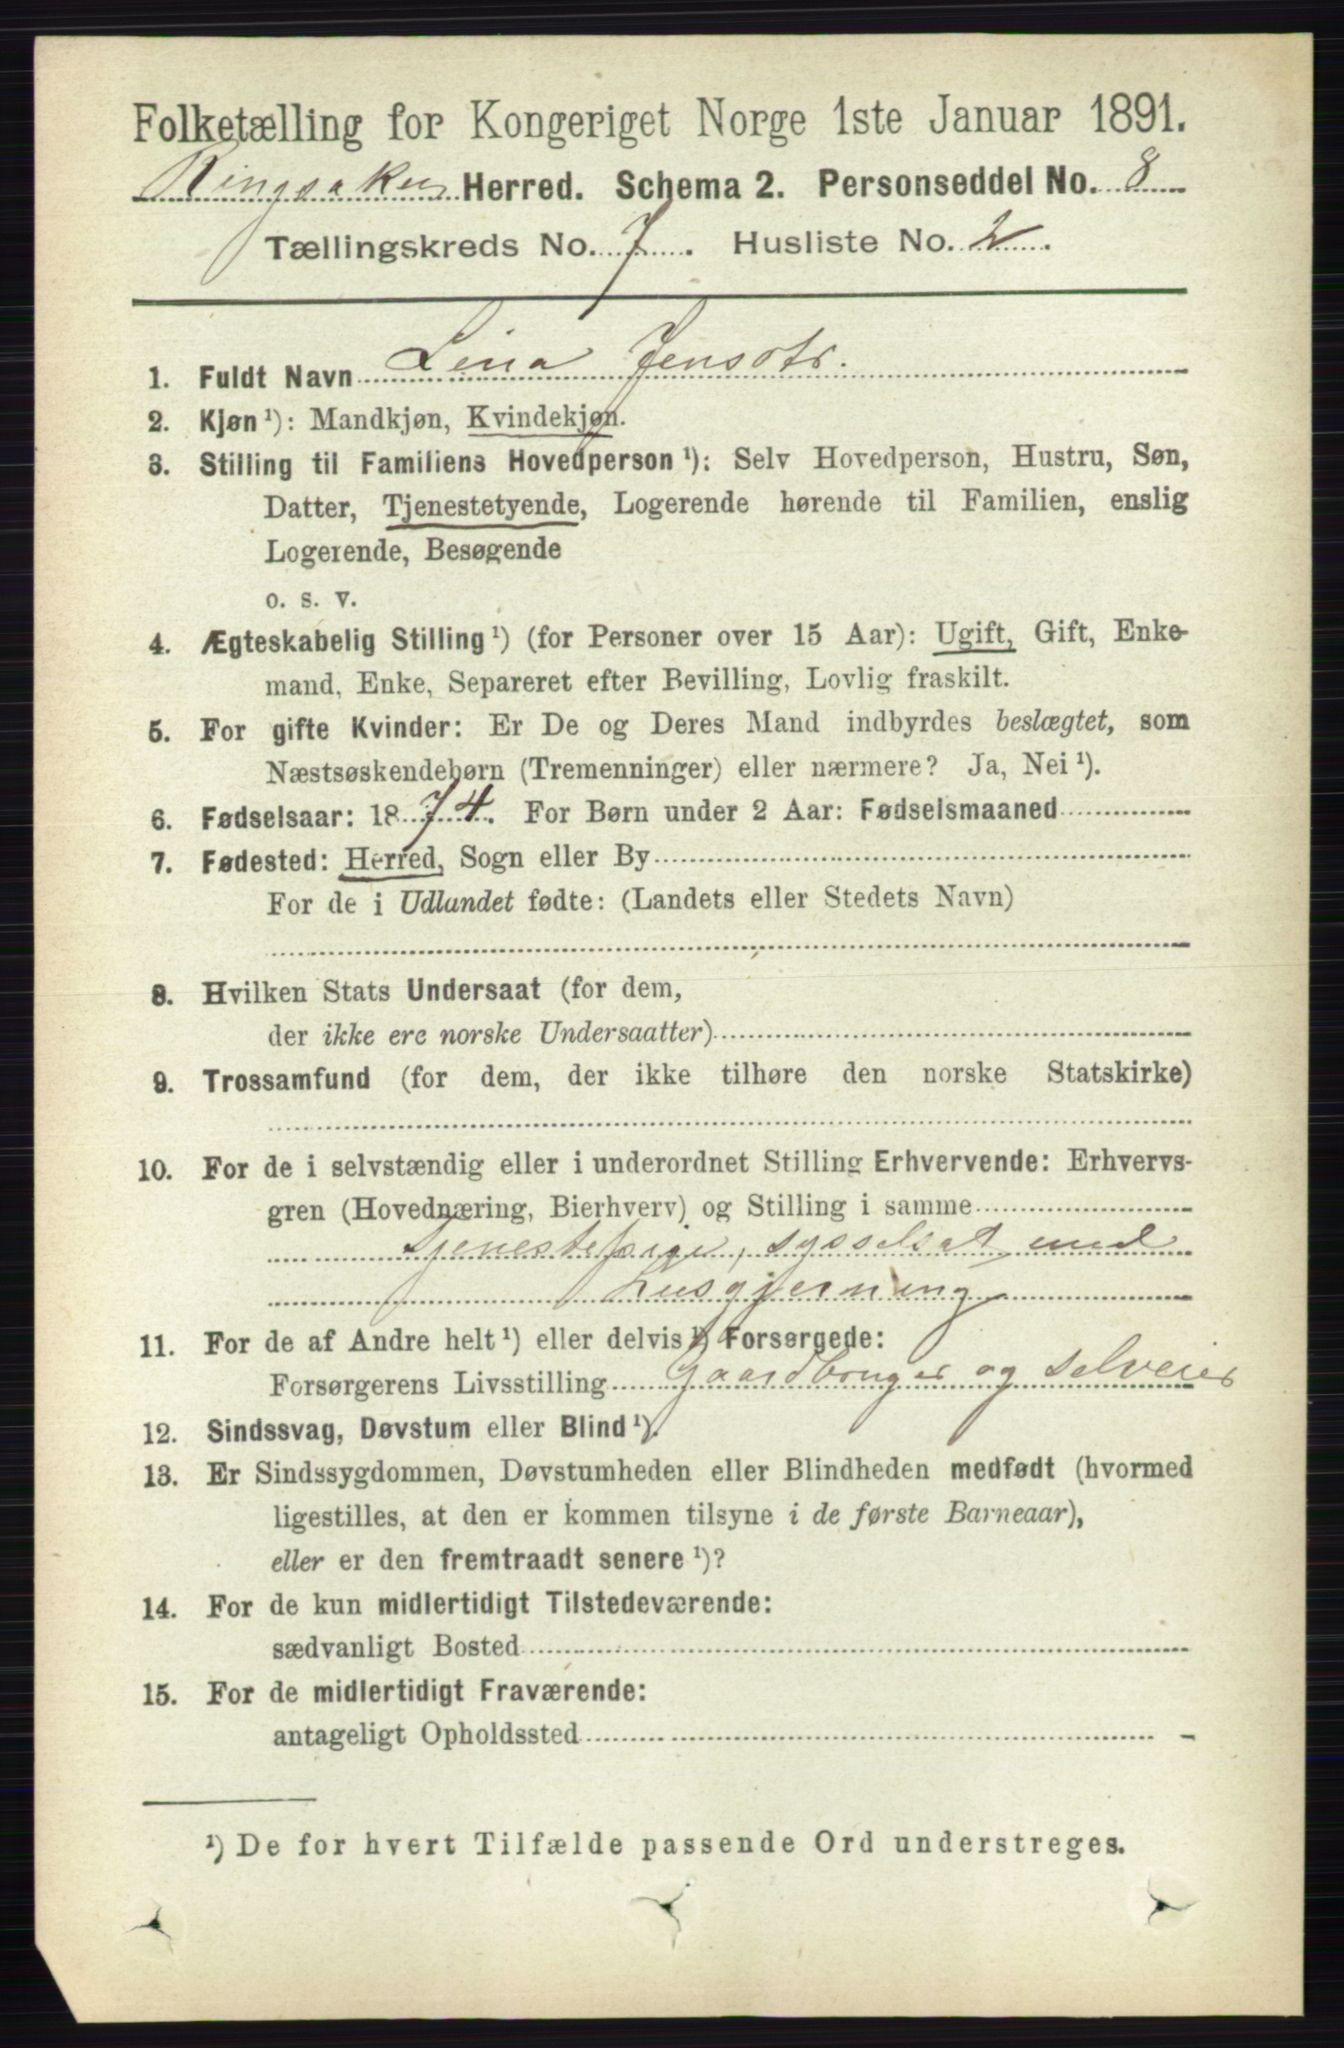 Folketælling for Kongeriget Norge 1ste Januar 1891.
Ringsaker Herred. Schema 2. Personseddel No. 8
Tællingskreds No. 7. Husliste No. 2.
1. Fuldt Navn Lina Jensdtr.
2. Kjøn¹): Mandkjøn, Kvindekjøn.
3. Stilling til Familiens Hovedperson¹): Selv Hovedperson, Hustru, Søn,
Datter, Tjenestetyende, Logerende hørende til Familien, enslig
Logerende, Besøgende
o. s. v.
4. Ægteskabelig Stilling¹) (for Personer over 15 Aar): Ugift, Gift, Enke-
mand, Enke, Separeret efter Bevilling, Lovlig fraskilt.
5. For gifte Kvinder: Er De og Deres Mand indbyrdes beslægtet, som
Næstsøskendebørn (Tremenninger) eller nærmere? Ja, Nei¹).
6. Fødselsaar: 1874. For Børn under 2 Aar: Fødselsmaaned
7. Fødested: Herred, Sogn eller By
For de i Udlandet fødte: (Landets eller Stedets Navn)
8. Hvilken Stats Undersaat (for dem,
der ikke ere norske Undersaatter)
9. Trossamfund (for dem, der ikke tilhøre den norske Statskirke)
10. For de i selvstændig eller i underordnet Stilling Erhvervende: Erhvervs-
gren (Hovednæring, Bierhverv) og Stilling i samme
Tjenestepige, sysselsat med
husgjerning
11. For de af Andre helt¹) eller delvis¹) Forsørgede:
Forsørgerens Livsstilling Gaardbruger og selveier
12. Sindssvag, Døvstum eller Blind¹).
13. Er Sindssygdommen, Døvstumheden eller Blindheden medfødt (hvormed
ligestilles, at den er kommen tilsyne i de første Barneaar),
eller er den fremtraadt senere¹)?
14. For de kun midlertidigt Tilstedeværende:
sædvanligt Bosted
15. For de midlertidigt Fraværende:
antageligt Opholdssted
¹) De for hvert Tilfælde passende Ord understreges.